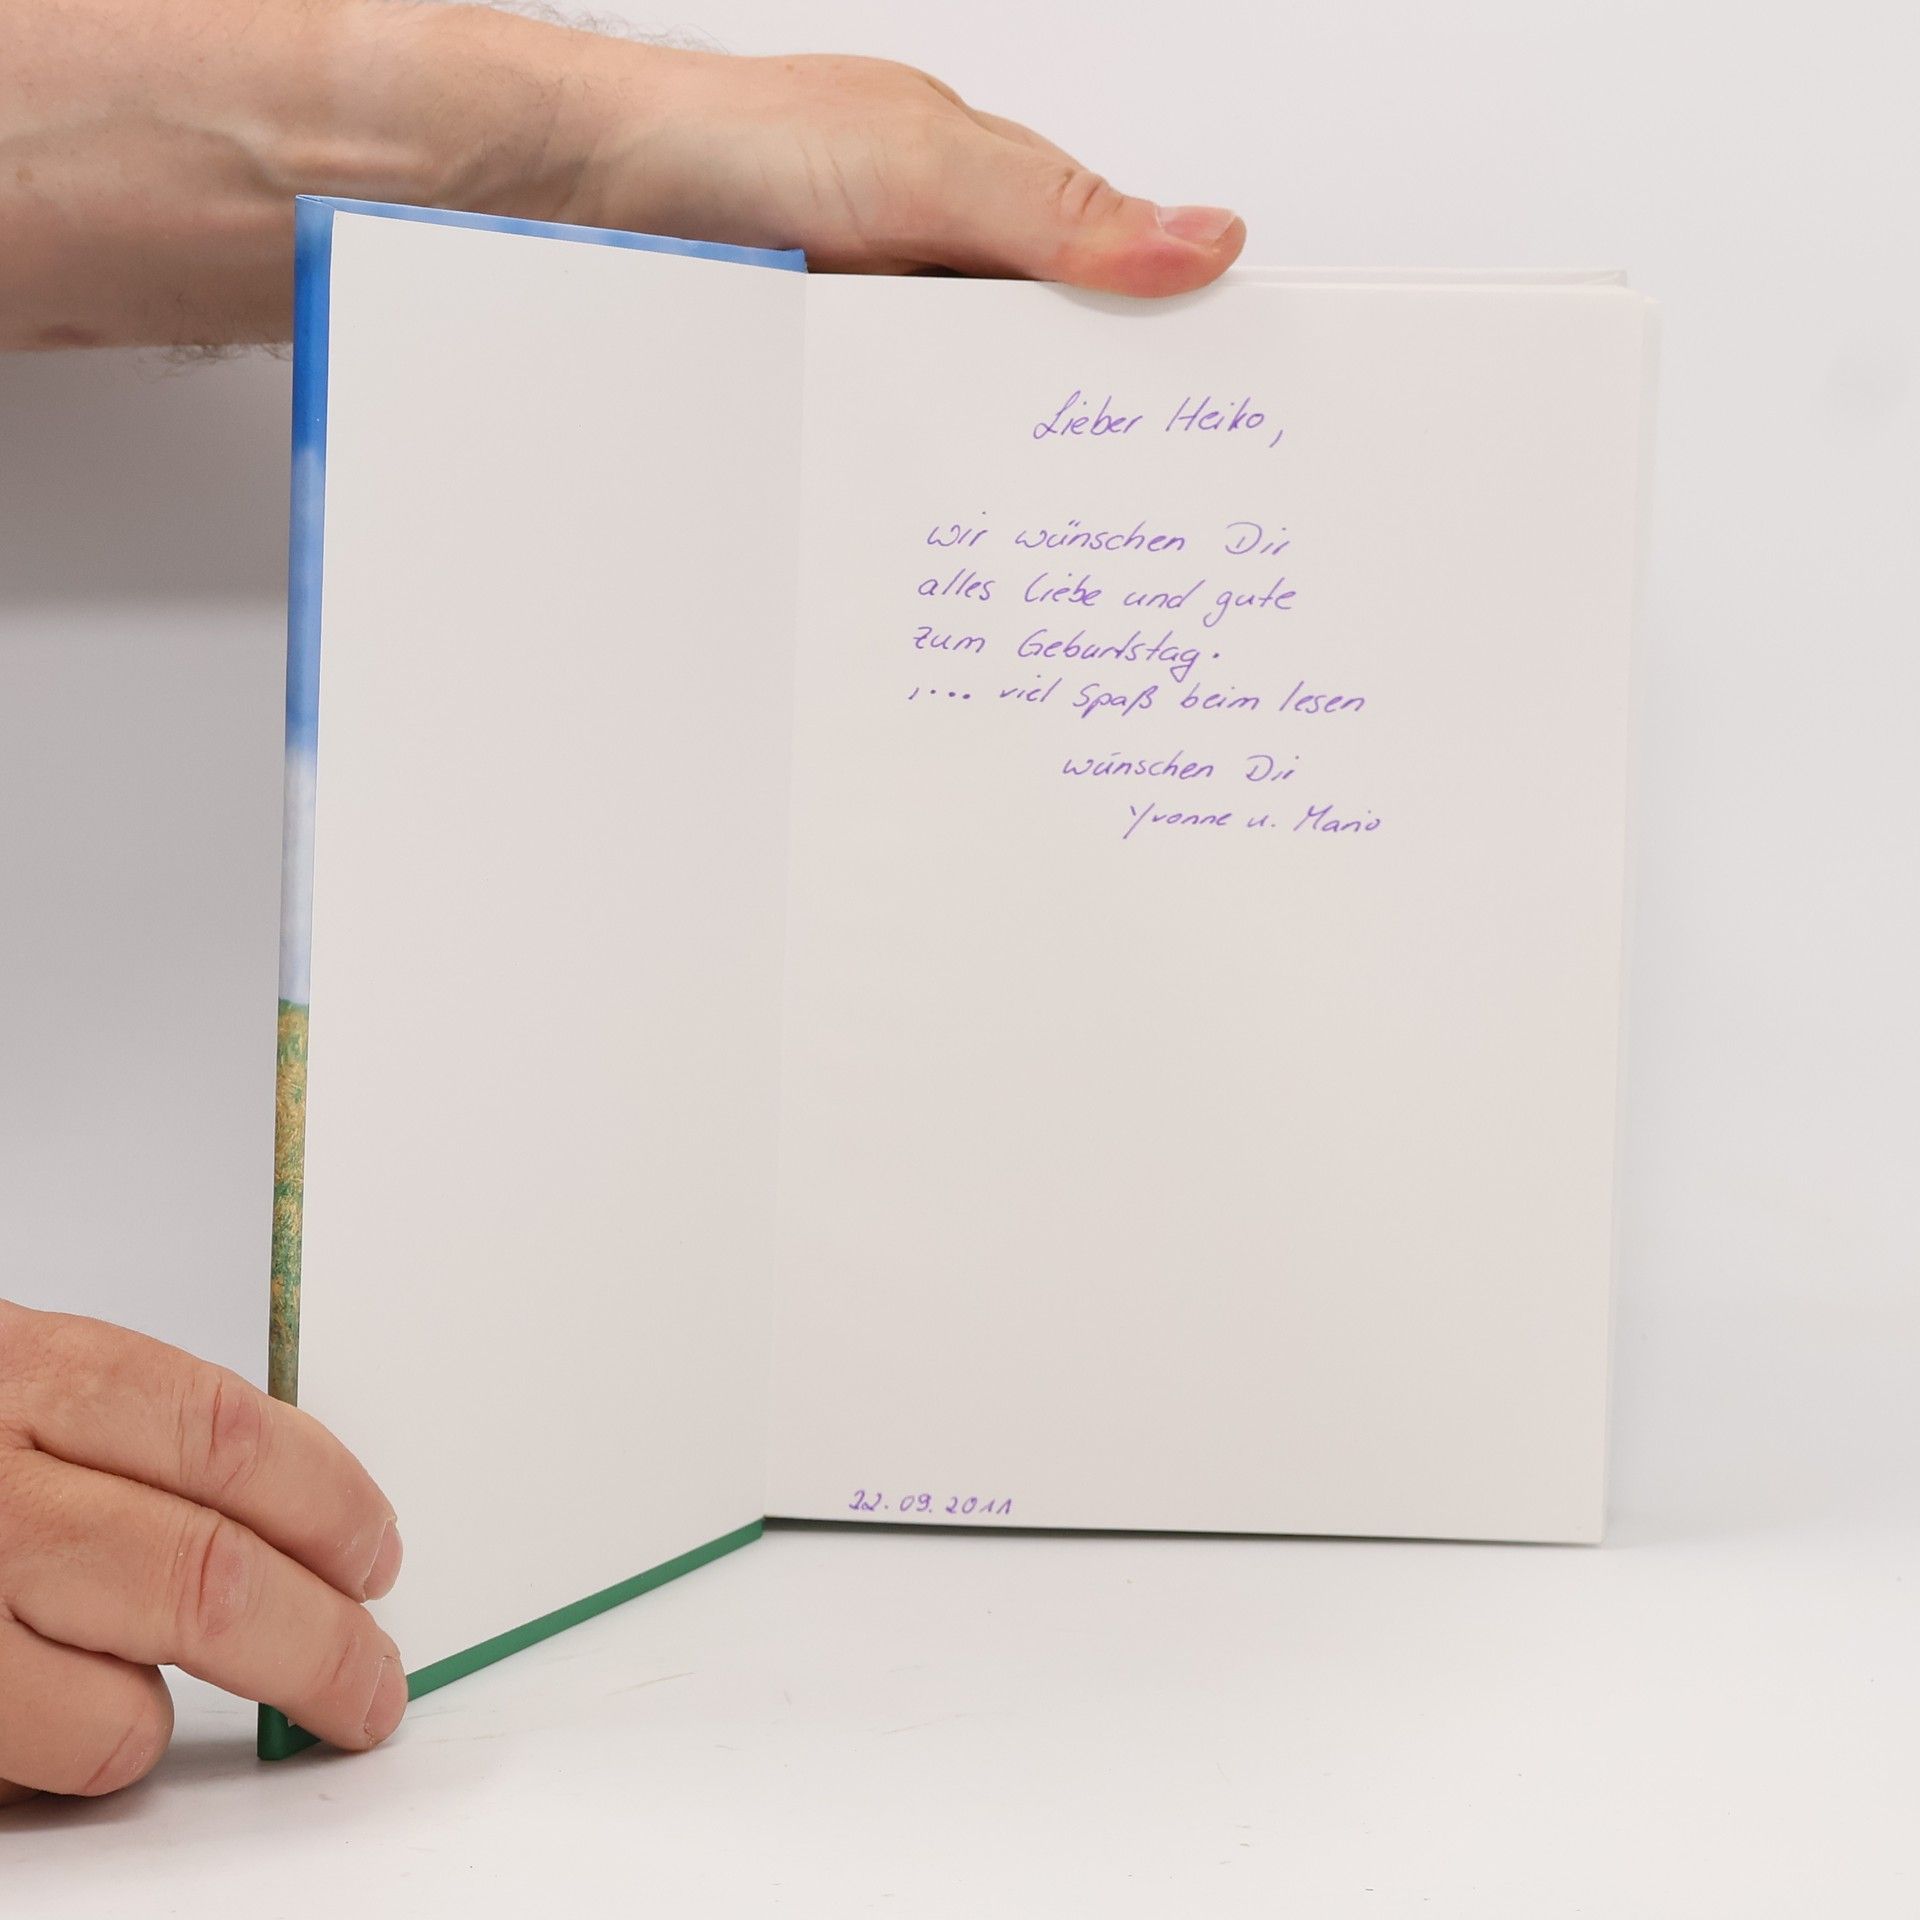 Lieber Heiko,
wir wünschen Dir
alles liebe und gute
zum Geburtstag.
,... viel Spaß beim lesen
wünschen Dir
Yvonne u. Mario
22.09.2011